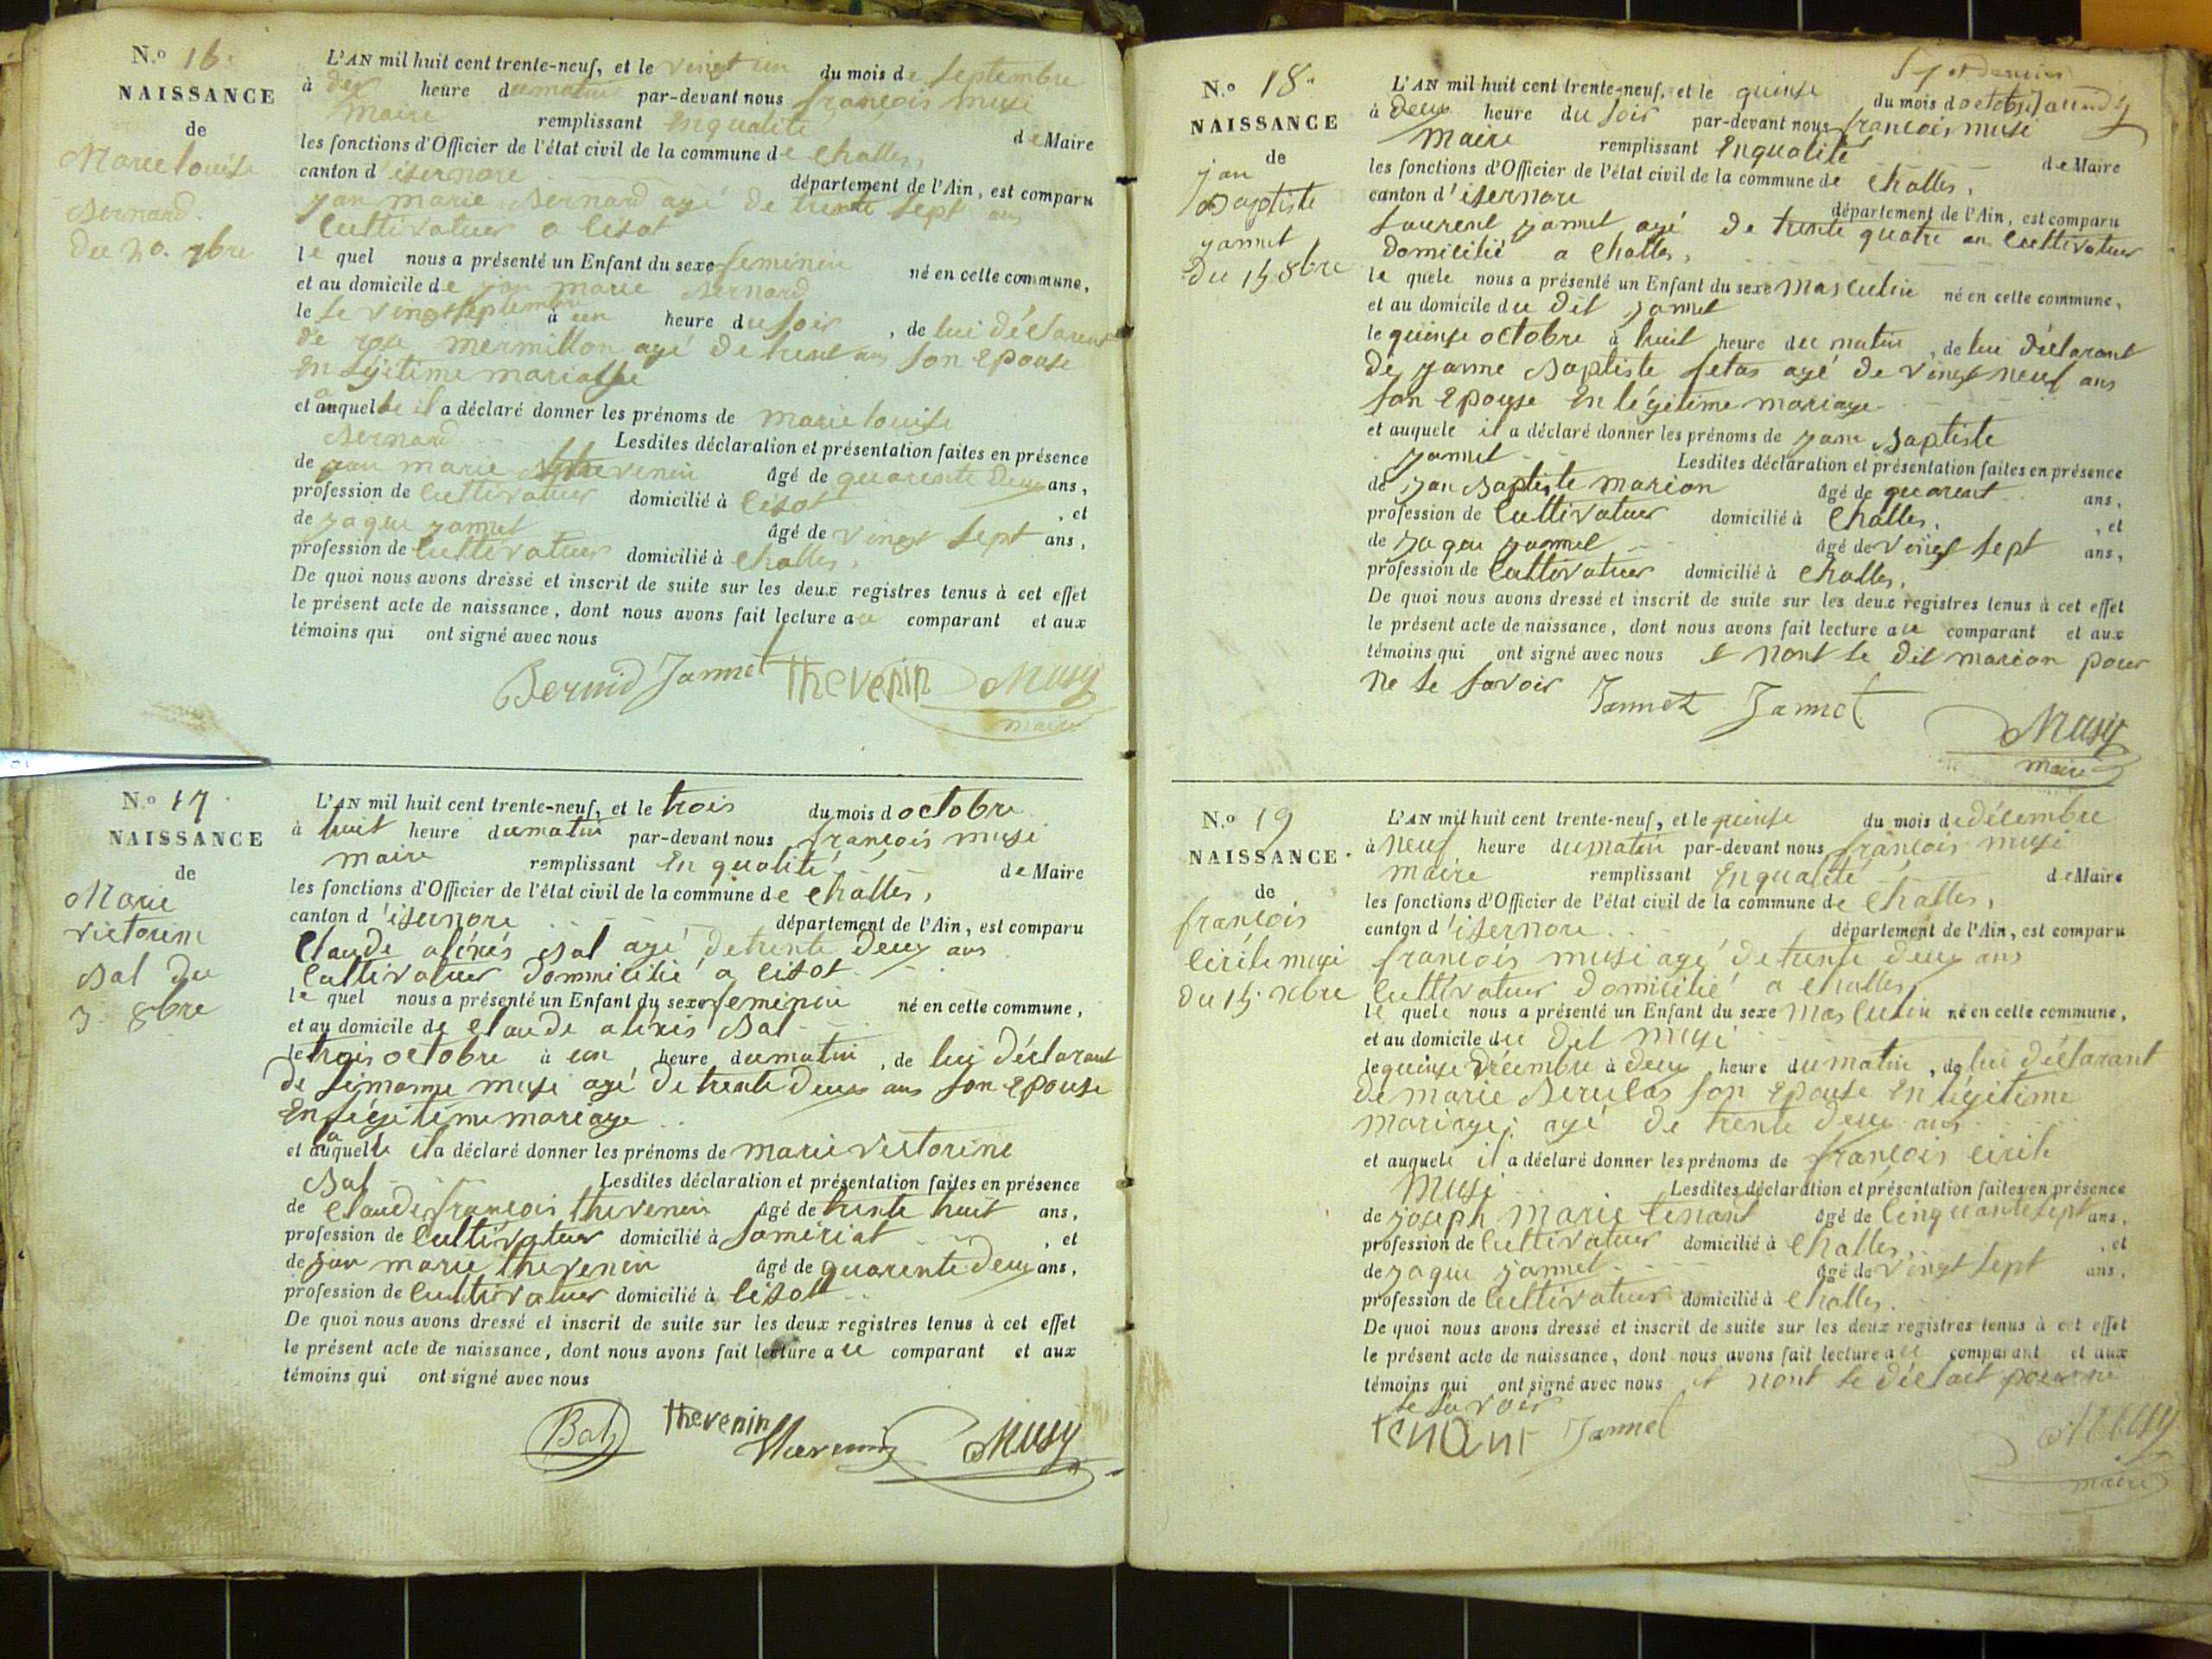 N.o 16.
NAISSANCE
de
Marie louise
Bernard.
Du 20. 7bre
L'AN mil huit cent trente-neuf, et le vingt un du mois de septembre
à dix heure du matin par-devant nous françois musi
maire remplissant En qualité de Maire
les fonctions d'Officier de l'état civil de la commune de Challes,
canton d'isernore département de l'Ain, est comparu
jan marie Bernard agé de trente sept ans
Cultivateur a lisot
le quel nous a présenté un Enfant du sexe feminin né en cette commune,
et au domicile de jan marie Bernard
le le vingt septembre à un heure du soir, de lui déclarant
de mermillon agé de trent ans son Epouse
En légitime mariage
et auquelle il a déclaré donner les prénoms de marie louise
Bernard Lesdites déclaration et présentation faites en présence
de jan marie thevenin âgé de quarente deux ans,
profession de Cultivateur domicilié à lisot, et
de jaque jannet âgé de vingt sept ans,
profession de Cultivateur domicilié à Challes,
De quoi nous avons dressé et inscrit de suite sur les deux registres tenus à cet effet
le présent acte de naissance, dont nous avons fait lecture au comparant et aux
témoins qui ont signé avec nous
Jannet Thevenin Musy
maire
N.o 17.
NAISSANCE
de
Marie
victorine
Bal du
3 8bre
L'AN mil huit cent trente-neuf, et le trois du mois d octobre
à huit heure du matin par-devant nous françois musi
maire remplissant En qualité de Maire
les fonctions d'Officier de l'état civil de la commune de Challes,
canton d'isernore département de l'Ain, est comparu
Claude alexis Bal agé de trente deux ans
Cultivateur dommicilié a lisot
le quel nous a présenté un Enfant du sexe feminin né en cette commune,
et au domicile de Claude alexis Bal
le trois octobre à un heure du matin, de lui déclarant
de simonne musi agé de trente deux ans son Epouse
En légitime mariage
et auquelle il a déclaré donner les prénoms de marie victorine
Bal Lesdites déclaration et présentation faites en présence
de Claude françois thevenin âgé de trente huit ans,
profession de Cultivateur domicilié à Samériat, et
de jan marie thevenin âgé de quarente deux ans,
profession de Cultivateur domicilié à lisot
De quoi nous avons dressé et inscrit de suite sur les deux registres tenus à cet effet
le présent acte de naissance, dont nous avons fait lecture au comparant et aux
témoins qui ont signé avec nous
Bal Thevenin Thevenin Musy
N.o 18.
NAISSANCE
de
jan
Baptiste
jannet
Du 15 8bre
L'AN mil huit cent trente-neuf, et le quinse du mois d octobre
à deux heure du soir par-devant nous françois musi
maire remplissant En qualité de Maire
les fonctions d'Officier de l'état civil de la commune de Challes,
canton d'isernore département de l'Ain, est comparu
laurent jannet agé de trente quatre an Cultivateur
domicilié a Challes,
le quele nous a présenté un Enfant du sexe masculin né en cette commune,
et au domicile du dit jannet
le quinse octobre à huit heure du matin, de lui déclarant
de janne Baptiste agé de vingt neuf ans
son Epouse En légitime mariage
et auquele il a déclaré donner les prénoms de jane Baptiste
jannet Lesdites déclaration et présentation faites en présence
de jan Baptiste marion âgé de quarent ans,
profession de Cultivateur domicilié à Challes, et
de jaque jannet âgé de vingt sept ans,
profession de Cultivateur domicilié à Challes,
De quoi nous avons dressé et inscrit de suite sur les deux registres tenus à cet effet
le présent acte de naissance, dont nous avons fait lecture au comparant et aux
témoins qui ont signé avec nous et nont le dit marion pour
ne le savoir Jannet Jannet
Musy
maire
N.o 19
NAISSANCE.
de
françois
Cirile musi
Du 15. xbre
L'AN mil huit cent trente-neuf, et le quinse du mois de décembre
à neuf heure du matin par-devant nous françois musi
maire remplissant En qualité de Maire
les fonctions d'Officier de l'état civil de la commune de Challes,
canton d'isernore département de l'Ain, est comparu
françois musi agé de trente deux ans
Cultivateur domicilié a Challes,
le quele nous a présenté un Enfant du sexe masculin né en cette commune,
et au domicile du dit musi
le quinse décembre à deux heure du matin, de lui déclarant
de marie son Epouse En légitime
mariage; agé de trente deux ans
et auquele il a déclaré donner les prénoms de françois Cirile
musi Lesdites déclaration et présentation faites en présence
de joseph marie tenant âgé de Cinquante sept ans,
profession de Cultivateur domicilié à Challes, et
de jaque jannet âgé de vingt sept ans,
profession de Cultivateur domicilié à Challes.
De quoi nous avons dressé et inscrit de suite sur les deux registres tenus à cet effet
le présent acte de naissance, dont nous avons fait lecture au comparant et aux
témoins qui ont signé avec nous et nont le pour ne
le savoir
Tenant Jannet Musy
maire